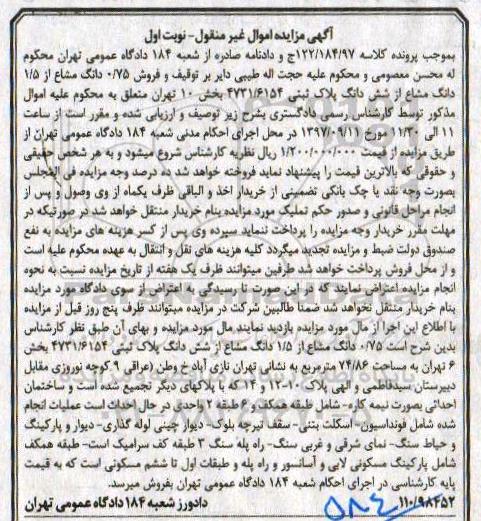 آگهی مزایده اموال غیر منقول- نوبت اول
بموجب پرونده کلاسه ۱۲۲/۱۸۴/۹۷ج و دادنامه صادره از شعبه ۱۸۴ دادگاه عمومی تهران محکوم
له محسن معصومی و محکوم علیه حجت اله طیبی دایر بر توقیف و فروش ۰/۷۵ دانگ مشاع از ۱/۵
دانگ مشاع از شش دانگ پلاک ثبتی ۴۷۳۱/۶۱۵۴ بخش ۱۰ تهران متعلق به محکوم علیه اموال
مذکور توسط کارشناس رسمی دادگستری بشرح زیر توصیف و ارزیابی شده و مقرر است از ساعت
۱۱ الی ۱۱/۳۰ مورخ ۱۳۹۷/۰۹/۱۱ در محل اجرای احکام مدنی شعبه ۱۸۴ دادگاه عمومی تهران از
طریق مزایده از قیمت ۱/۲۰۰/۰۰۰/۰۰۰ ریال نظریه کارشناس شروع میشود و به هر شخص حقیقی
و حقوقی که بالاترین قیمت را پیشنهاد نماید فروخته خواهد شد ده درصد وجه مزایده فی المجلس
بصورت وجه نقد یا چک بانکی تضمینی از خریدار اخذ و الباقی ظرف یکماه از وی وصول و پس از
انجام مراحل قانونی و صدور حکم تملیک مورد مزایده بنام خریدار منتقل خواهد شد در صورتیکه در
مهلت مقرر خریدار وجه مزایده را پرداخت ننماید سپرده وی پس از کسر هزینه های مزایده به نفع
صندوق دولت ضبط و مزایده تجدید میگردد کلیه هزینه های نقل و انتقال به عهده محکوم علیه است
و از محل فروش پرداخت خواهد شد طرفین میتوانند ظرف یک هفته از تاریخ مزایده نسبت به نحوه
انجام مزایده اعتراض نمایند که در این صورت تا رسیدگی به اعتراض از سوی دادگاه مورد مزایده
بنام خریدار منتقل نخواهد شد ضمنا طالبین شرکت در مزایده میتوانند ظرف پنج روز قبل از مزایده
با اطلاع این اجرا از مال مورد مزایده بازدید نمایند مال مورد مزایده و بهای آن طبق نظر کارشناس
بدین شرح است ۰/۷۵ دانگ مشاع از ۱/۵ دانگ مشاع از شش دانگ پلاک ثبتی ۴۷۳۱/۶۱۵۴ بخش
۶ تهران به مساحت ۷۴/۸۶ مترمربع به نشانی تهران نازی آباد خ وطن (عراقی ۹ کوچه نوروزی مقابل
دبیرستان سیدفاطمی و الهی پلاک ۱۰-۱۲ و ۱۴ که با پلاکهای دیگر تجمیع شده است و ساختمان
احداثی بصورت نیمه کاره- شامل طبقه همکف و ۶ طبقه ۲ واحدی در حال احداث است عملیات انجام
شده شامل فونداسیون- اسکلت بتنی- سقف تیرچه بلوک- دیوار چینی لوله گذاری- دیوار و پارکینگ
و حیاط سنگ- نمای شرقی و غربی سنگ- راه پله سنگ ۳ طبقه کف سرامیک است- طبقه همکف
شامل پارکینگ مسکونی لابی و آسانسور و راه پله و طبقات اول تا ششم مسکونی است که به قیمت
پایه کارشناسی در اجرای احکام شعبه ۱۸۴ دادگاه عمومی تهران بفروش میرسد.
۱۱۰/۹۸۴۵۲ دادورز شعبه ۱۸۴ دادگاه عمومی تهران